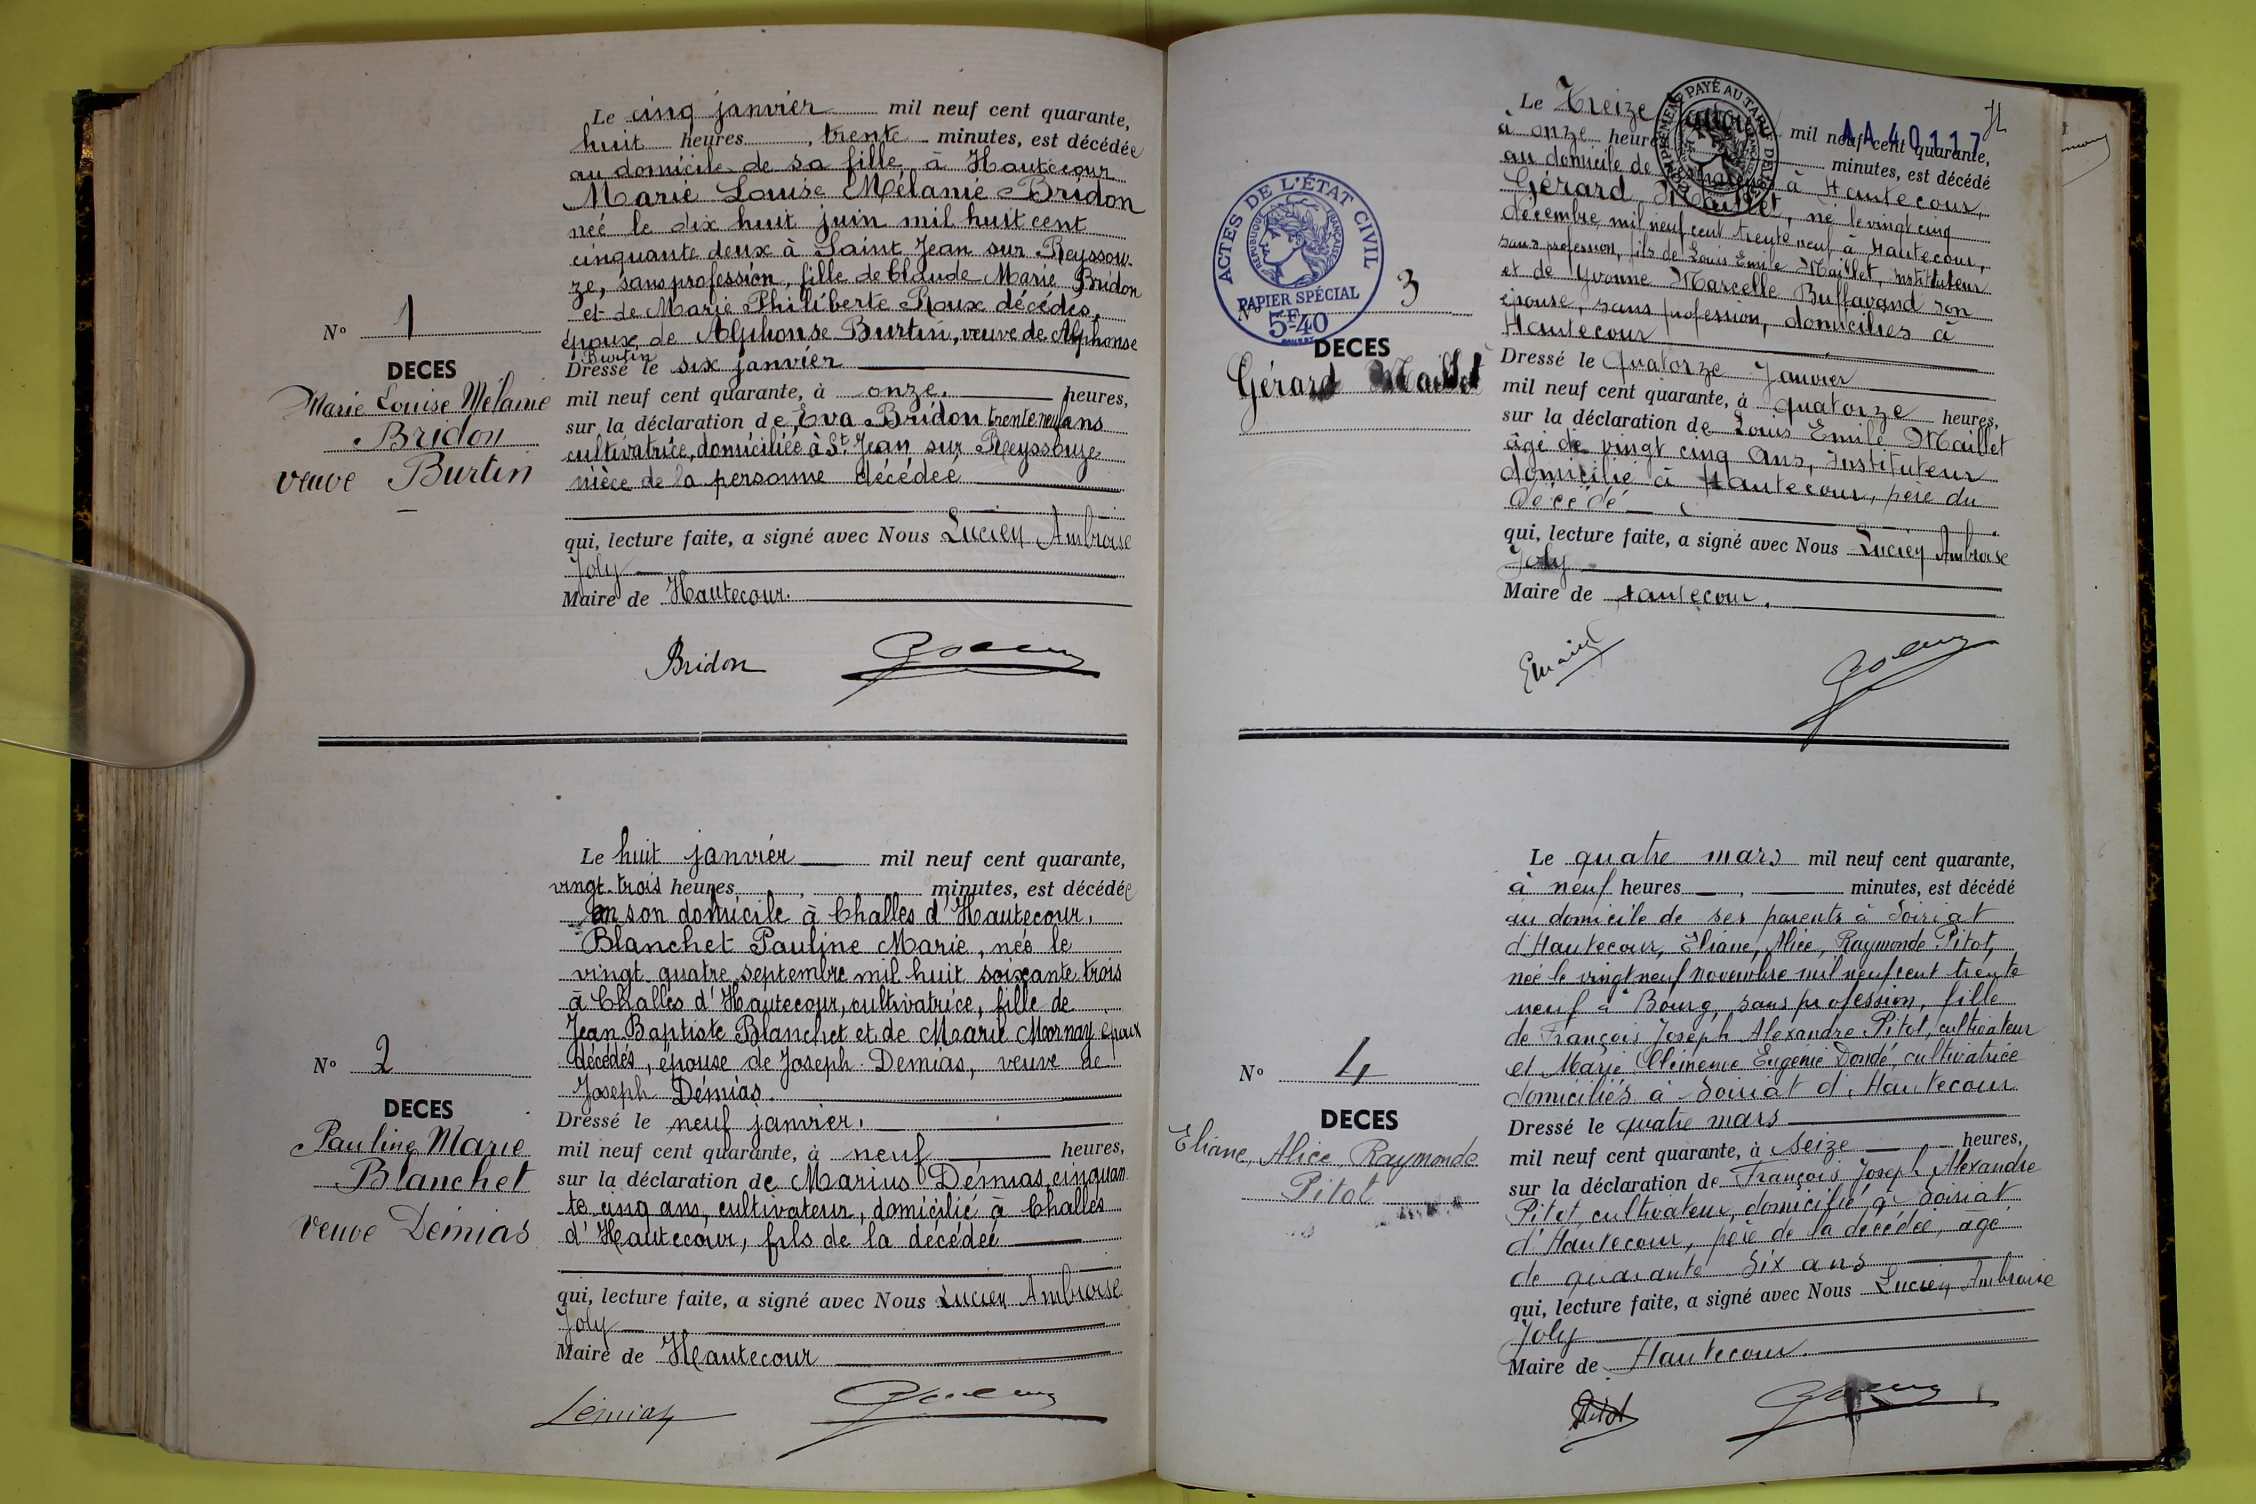 Le cinq janvier mil neuf cent quarante,
huit heures, trente minutes, est décédée
au domicile de sa fille à Hautecour
Marie Louise Mélanie Bridon
née le dix huit juin mil huit cent
cinquante deux à Saint Jean sur Reyssou-
ze, sans profession, fille de Claude Marie Bridon
et de Marie Philiberte Roux décédés,
époux de Alphonse Burtin, veuve de Alphonse
Burtin
N° 1
DECES
Marie Louise Mélanie
Bridon
veuve Burtin
Dressé le six janvier
mil neuf cent quarante, à onze heures,
sur la déclaration de Eva Bridon trente neuf ans
cultivatrice, domiciliée à St Jean sur Reyssouze
nièce de la personne décédée
qui, lecture faite, a signé avec Nous Lucien Ambroise
Joly
Maire de Hautecour.
Bridon
Le huit janvier mil neuf cent quarante,
vingt-trois heures, minutes, est décédée
en son domicile à Challes d'Hautecour,
Blanchet Pauline Marie, née le
vingt quatre septembre mil huit soixante trois
à Challes d'Hautecour, cultivatrice, fille de
Jean Baptiste Blanchet et de Marie Mornay époux
décédés, épouse de Joseph Demias, veuve de
Joseph Démias.
N° 2
DECES
Pauline Marie
Blanchet
veuve Démias
Dressé le neuf janvier.
mil neuf cent quarante, à neuf heures,
sur la déclaration de Marius Démias, cinquan
te cinq ans, cultivateur, domicilié à Challes
d'Hautecour, fils de la décédée
qui, lecture faite, a signé avec Nous Lucien Ambroise
Joly
Maire de Hautecour
Demias
Le Treize mil neuf cent quarante,
AA 40117
à onze heures minutes, est décédé
au domicile de à Hautecour,
Gérard Maillet, né le vingt cinq
décembre mil neuf cent trente neuf à Hautecour,
sans profession, fils de Louis Emile Maillet, Instituteur
et de Yvonne Marcelle Buffavand son
épouse, sans profession, domiciliés à
Hautecour
ACTES DE L'ÉTAT CIVIL
RÉPUBLIQUE FRANÇAISE
PAPIER SPÉCIAL
5F.40
N° 3
DECES
Gérard Maillet
Dressé le Quatorze Janvier
mil neuf cent quarante, à quatorze heures,
sur la déclaration de Louis Emile Maillet
âgé de vingt cinq ans, Instituteur
domicilié à Hautecour, père du
décédé
qui, lecture faite, a signé avec Nous Lucien Ambroise
Joly
Maire de Hautecour.
Le quatre mars mil neuf cent quarante,
à neuf heures, minutes, est décédé
au domicile de ses parents à Soiriat
d'Hautecour, Eliane, Alice, Raymonde Pitot,
née le vingt neuf novembre mil neuf cent trente
neuf à Bourg, sans profession, fille
de François Joseph Alexandre Pitot, cultivateur
et Marie Clémence Eugénie Dondé, cultivatrice
domiciliés à Soiriat d'Hautecour
N° 4
DECES
Eliane, Alice, Raymonde
Pitot
Dressé le quatre mars
mil neuf cent quarante, à seize heures,
sur la déclaration de François Joseph Alexandre
Pitot, cultivateur, domicilié à Soiriat
d'Hautecour, père de la décédée, âgé
de quarante six ans
qui, lecture faite, a signé avec Nous Lucien Ambroise
Joly
Maire de Hautecour.
Pitot